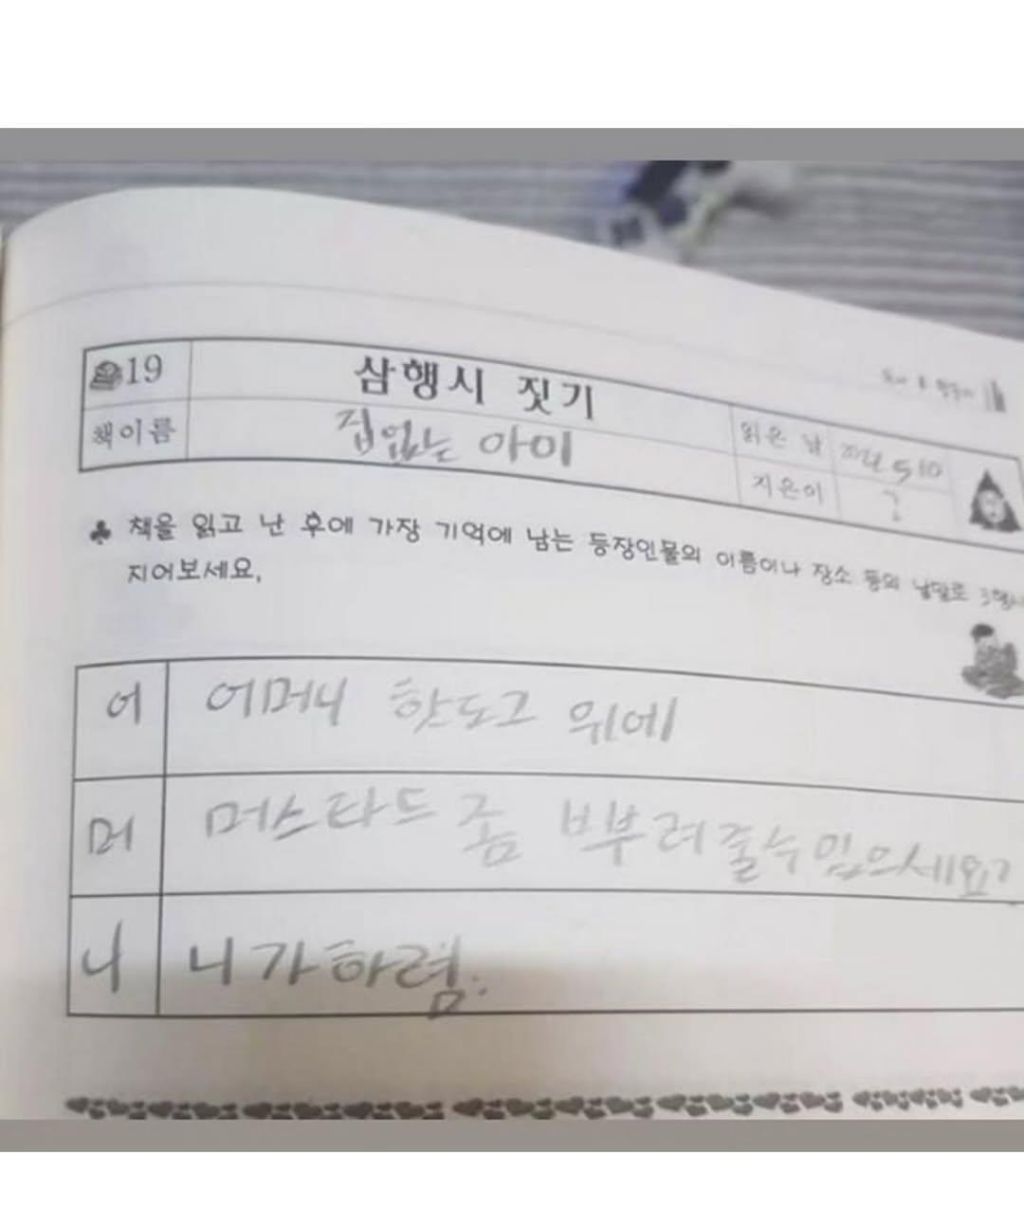 19 삼행시 짓기
책이름 집없는 아이
읽은 날 5 10
지은이 ?
♣ 책을 읽고 난 후에 가장 기억에 남는 등장인물의 이름이나 장소 등의 낱말로 3행시
지어보세요.
어 어머니 핫도그 위에
머 머스타드 좀 뿌려줄수있으세요?
니 니가하렴.